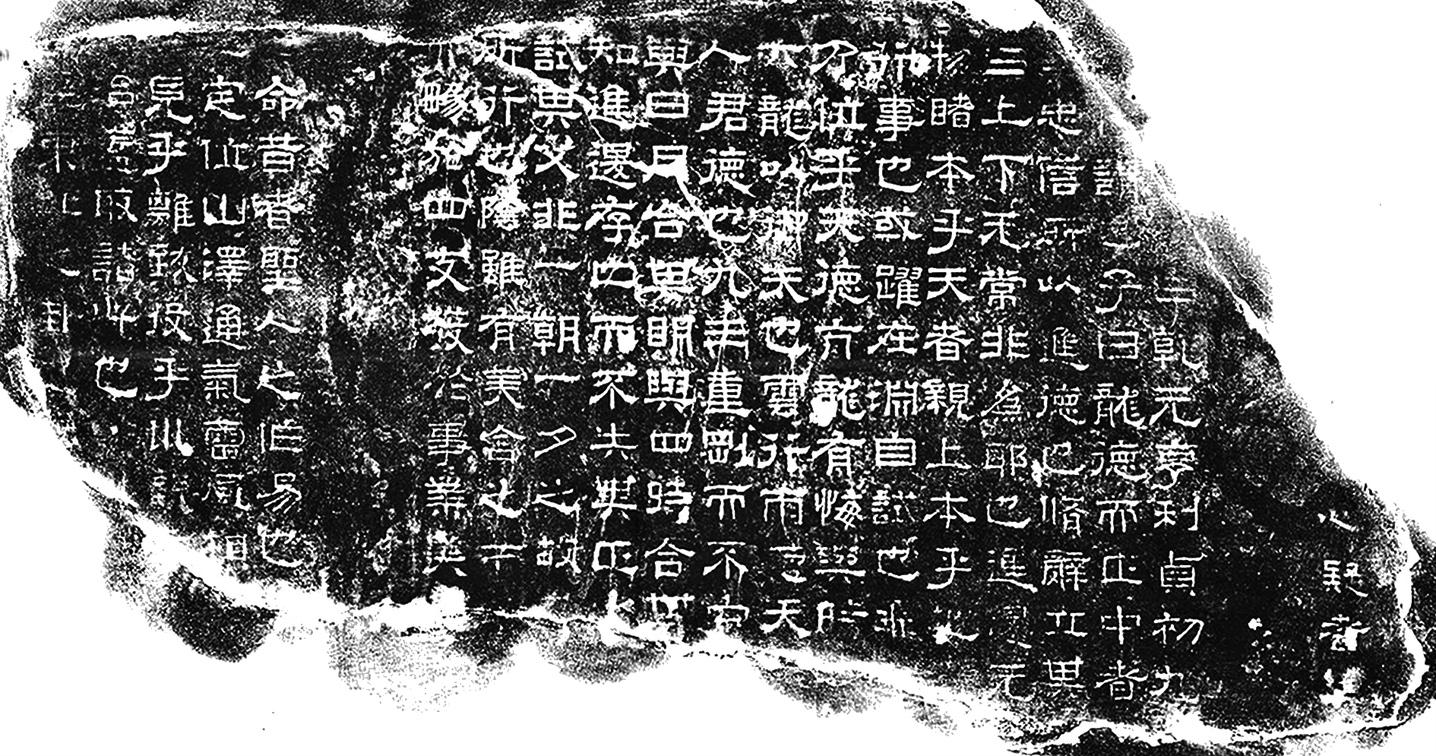 心疑者
乾元亨利貞初九
子曰龍德而正中者
忠信所以進德也脩辭立其
上下无常非為邪也進退无
物睹本乎天者親上本乎地
行事也或躍在淵自試也飛
乃位乎天德亢龍有悔與時
六龍以御天也雲行雨施天
人君德也九三重剛而不中
與日月合其明與四時合其
知進退存亡而不失其正
試其父非一朝一夕之故
所行也陰雖有美含之
亦暢於四支發於事業美
命昔者聖人之作易也
定位山澤通氣雷風相
見乎離致役乎川說
取諸此也
卦